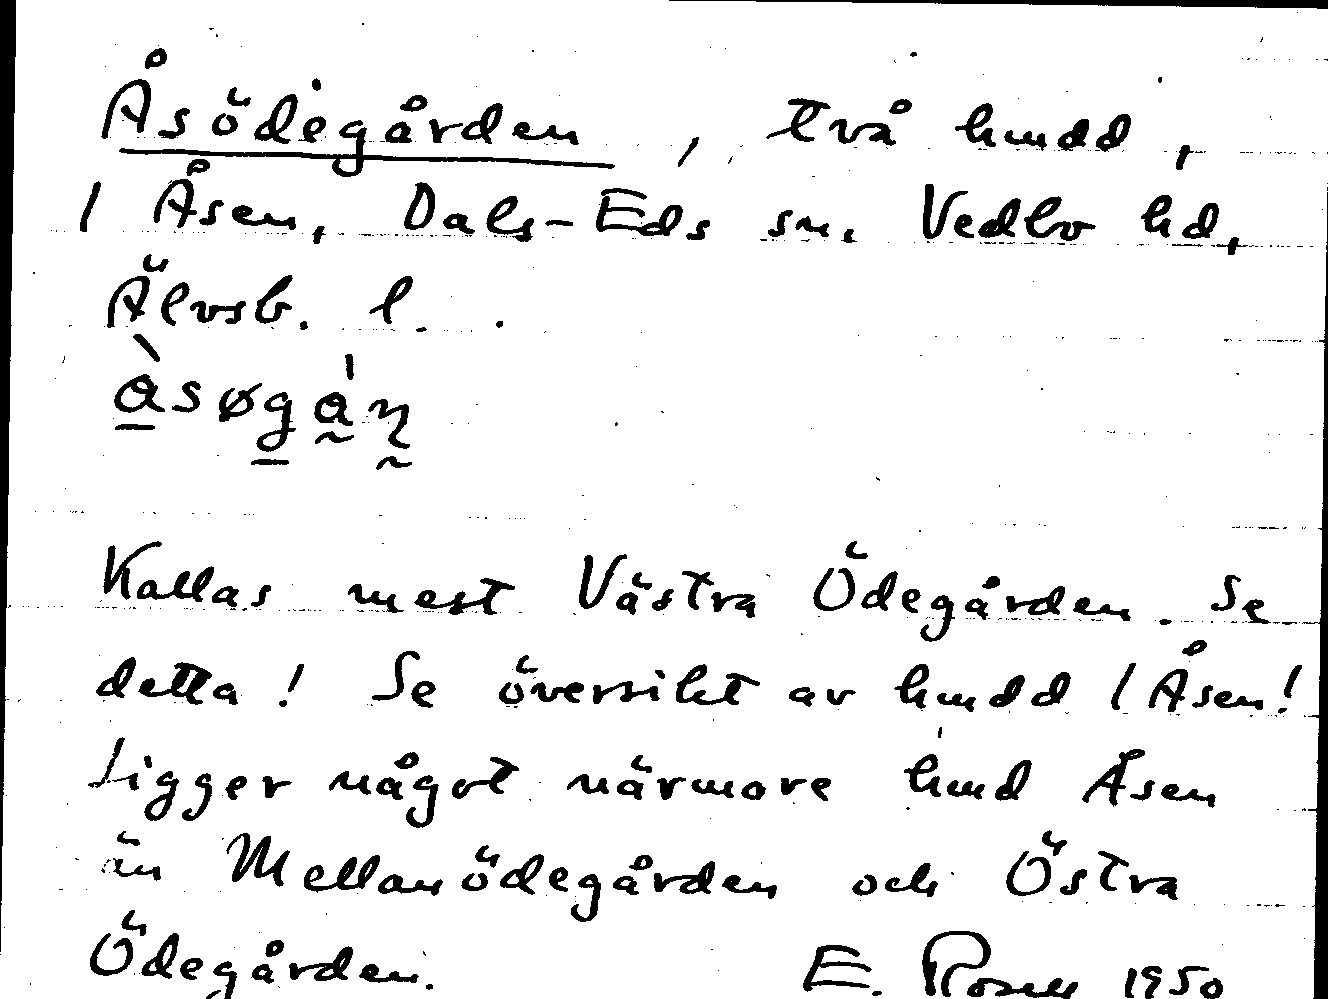 Åsödegården, två hmdd,
/ Åsen, Dals-Eds sn. Vedbo hd,
Älvsb. l.
àsøgán
Kallas mest Västra Ödegården. Se
detta! Se översikt av hmdd / Åsen!
Ligger något närmare hmd Åsen
än Mellanödegården och Östra
Ödegården. E. Rosell 1950